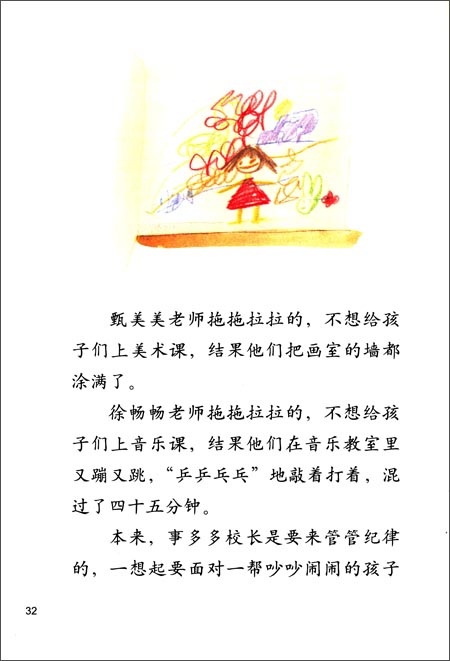 甄美美老师拖拖拉拉的，不想给孩
子们上美术课，结果他们把画室的墙都
涂满了。
徐畅畅老师拖拖拉拉的，不想给孩
子们上音乐课，结果他们在音乐教室里
又蹦又跳，“乒乒乓乓”地敲着打着，混
过了四十五分钟。
本来，事多多校长是要来管管纪律
的，一想起要面对一帮吵吵闹闹的孩子
32